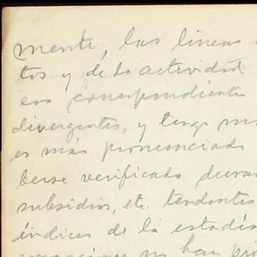 mente, las lineas
tos y de la actividad
con correspondiente
divergentes, y tengo
es más pronunciada
berse verificado duran
subsidios, etc. tendentes
índices de la estadís
no han